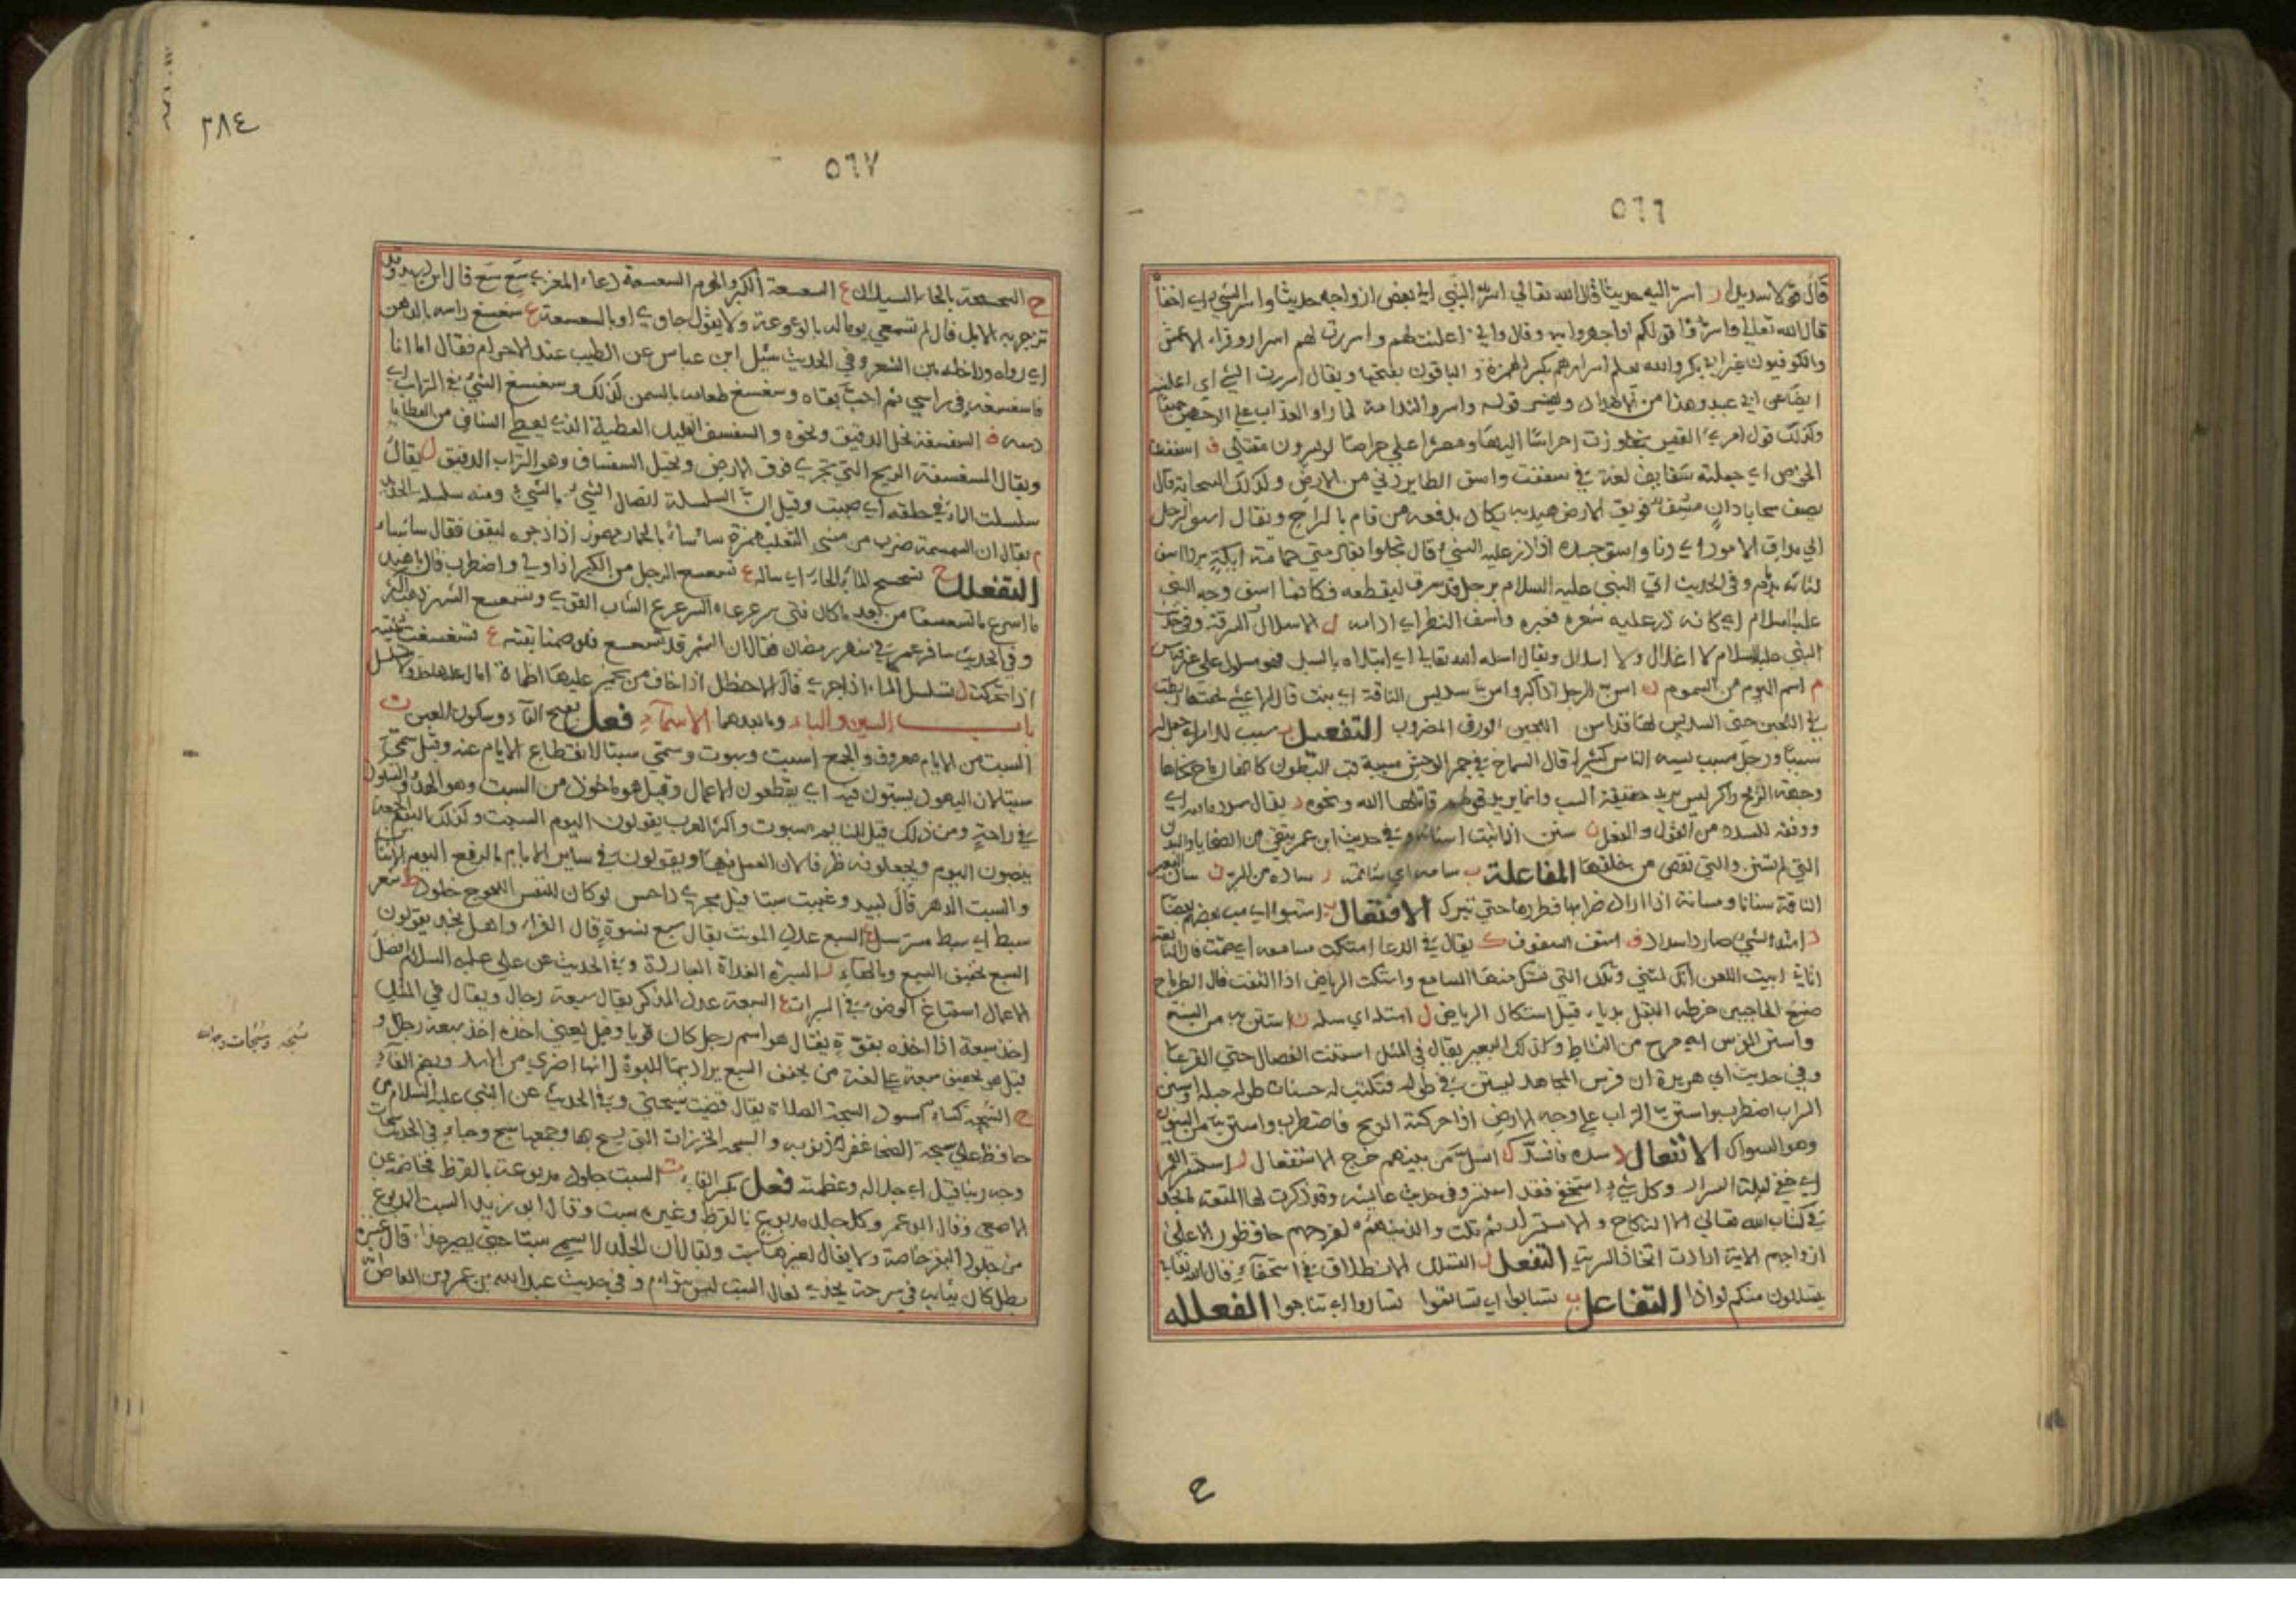 ٥٦٦
قال قولا سديدا ر اسر اليه حديثا قال الله تعالي اسر النبي الي بعض ازواجه حديثا واسر الشيء اي اخفاه
قال الله تعالي واسروا قولكم او اجهروا به وقال واني اعلنت لهم واسررت لهم اسرارا وقراء الاعمش
والكوفيون غير ابي بكر والله يعلم اسرارهم بكسر الهمزة والباقون بفتحها ويقال اسررت الشيء اي اعلنته
ايضا عن ابي عبيد وهذا من الاضداد ويفسر قوله واسروا الندامة لما راوا العذاب علي الوجهين جميعا
وكذلك قول امرئ القيس تجاوزت احراسا اليها ومعشرا علي حراصا لو يسرون مقتلي ف اسففت
الخوص اي جعلته سفايف لغة في سففت واسف الطاير دني من الارض وكذلك السحابة قال
يصف سحابا دان مسف فويق الارض هيدبه يكاد يدفعه من قام بالراح ويقال اسف الرجل
الي مداق الامور اي دنا واسف جسده اذا ذر عليه الشيء قال تجلوا بقادمتي حمامة ايكة بردا اسف
لثاته بالاثمد وفي الحديث اتي النبي عليه السلام برجل قد سرق ليقطعه فكانما اسف وجه النبي
عليه السلام اي كانه ذر عليه شيء فغيره واسف النظر اي ادامه ل الاسلال السرقة وفي حديث
النبي عليه السلام لا اغلال ولا اسلال ويقال اسله الله تعالي اي ابتلاه بالسل فهو مسلول علي غير قياس
م اسم اليوم من السموم ن اسن الرجل اذا كبر واسن سديس الناقة اي نبت قال الاعشي بحقتها ربطت
في اللجين حتي السديس لها قد اسن اللجين الورق المضروب التفعيل ب سبب للامر اي جعل له
سببا ورجل مسبب يسبه الناس كثيرا قال الشماخ في حمر الوحش مسببة قب البطون كانها رماح نحاها
وجهة الريح راكز ليس يريد حقيقة السب وانما يريد قولهم قاتلها الله ونحوه د يقال سدده الله اي
ووفقه للسدد من القول والفعل ن سنن اذا نبت اسنانه وفي حديث ابن عمر يتقي من الضحايا والبدن
التي لم تسنن والتي نقص من خلقها المفاعلة ب سابه اي شاتمه ر ساره من السر ن سان البعير
الناقة سنانا ومسانة اذا اراد ضرابها فطردها حتي تبرك الافتعال ب استبوا اي سب بعضهم بعضا
د استد الشيء صار ذا سداد ف استف السفوف ك يقال في الدعا استكت مسامعه اي صمت قال النابغة
اتاني ابيت اللعن انك لمتني وتلك التي تستك منها المسامع واستكت الرياض اذا التفت قال الطرماح
صنتع الحاجبين خرطه البقل بديا قبل استكاك الرياض ل استله اي سله ن استن به من السنة
واستن الفرس اي مرح من النشاط وكذلك البعير يقال في المثل استنت الفصال حتي القرعا
وفي حديث ابي هريرة ان فرس المجاهد ليستن في طوله فتكتب له حسنات طوله حبله واستن
السراب اضطرب واستن التراب علي وجه الارض اذا حركته الريح فاضطرب واستن من السنون
وهو السواك الانفعال د سده فانسد ل انسل من بينهم خرج الاستفعال ر استسر القمر
اي خفي ليلة السرار وكل شيء استخفي فقد استسر وفي حديث عايشه وقد ذكرت لها المتعة لم نجد
في كتاب الله تعالي الا النكاح والاستسرار ثم تلت والذين هم لفروجهم حافظون الا علي
ازواجهم الاية ارادت اتخاذ السراري التفعل ل التسلل الانطلاق في استخفاء قال الله تعالي
يتسللون منكم لواذا التفاعل ب تسابوا اي تشاتموا تساروا اي تناجوا الفعللة
ع
٥٦٧
٢٨٤
ح السحسحة بالحاء السيلان ع السعسعة الكبر والهرم السعسعة دعاء المعزي سع سع قال ابن دريد وقد
تزجر به الابل قال لم تسمعي يوما له بالوعوعة ولا يقول حاوي او بالسعسعة غ سغسغ راسه بالدهن
اي رواه وداخله بين الشعر وفي الحديث سئل ابن عباس عن الطيب عند الاحرام فقال اما انا
فاسغسغه في راسي ثم احب بقاه وسغسغ طعامه بالسمن كذلك وسغسغ الشيء في التراب اي
دسه ف السفسفة نخل الدقيق ونحوه والسفسف القليل العطية الذي يعطي السافي من العطايا
ويقال المسفسفة الريح التي تجري فوق الارض ونخيل السفساف وهو التراب الدقيق ل يقال
سلسلت الماء في حلقه اي صببت وقيل ان السلسلة اتصال الشيء بالشيء ومنه سلسلة الحديد
م يقال ان السمسمة ضرب من مشي الثعلب همزة ساسا بالحمار مهموز اذا زجره ليقف فقال ساساء
التفعلل ح تسحسح الماء بالحاء اي سال ع تسعسع الرجل من الكبر اذا ولي واضطرب قال يا هند
ما اسرع ما تسعسعا من بعد ما كان فتي سرعرعا السرعرع الشاب القوي وتسعسع الشهر ذهب اكثره
وفي الحديث سافر عمر في شهر رمضان فقال ان الشهر قد تسعسع فلو صمنا بقيته غ تسغسغت ثنيته
اذا تحركت ل تسلسل الماء اذا جري قال الاخطل اذا خاف من نجم عليها ظماءة امال عليها جدولا يتسلسل
باب السين والباء وما بعدهما الاسماء فعل بفتح الفاء وسكون العين ت
السبت من الايام معروف والجمع اسبت وسبوت وسمي سبتا لانقطاع الايام عنده وقيل سمي
سبتا لان اليهود يسبتون فيه اي يقطعون الاعمال وقيل هو ماخوذ من السبت وهو الهدو والسكون
في راحة ومن ذلك قيل للنايم مسبوت واكثر العرب يقولون اليوم السبت وكذلك اليوم الجمعة
ينصبون اليوم ويجعلونه ظرفا لان العمل فيهما ويقولون في ساير الايام بالرفع اليوم الاثنان
والسبت الدهر قال لبيد وغنيت سبتا قبل مجري داحس لو كان للنفس اللجوج خلود ط شعر
سبط اي سبط مسترسل ع السبع عدد المونث يقال سبع نسوة قال الفراء واهل نجد يقولون
السبع تخفيف السبع وبالهاء ر السبرة الغداة الباردة وفي الحديث عن علي عليه السلام افضل
الاعمال اسباغ الوضوء في السبرات ع السبعة عدد المذكر يقال سبعة رجال ويقال في المثل
اخذ سبعة اذا اخذه بقوة يقال هو اسم رجل كان قويا وقيل يعني اخذه اخذ سبعة رجال و
قيل هو تخفيف سبعة علي لغة من يخفف السبع يراد بها اللبوة لانها اضري من الاسد وبضم الفاء
ح السبجة كساء اسود السبحة الصلاة يقال قضيت سبحتي وفي الحديث عن النبي عليه السلام من
حافظ علي سبحة الضحا غفر له ذنوبه والسبحة الخرزات التي يسبح بها وجمعها سبح وجاء في الحديث سبحات
وجه ربنا قيل اي جلاله وعظمته فعل بكسر الفاء ت السبت جلود مدبوغة بالقرظ محاضه عن
الاصمعي وقال ابو عمر وكل جلد مدبوغ بالقرظ وغيره سبت وقال ابو زيد السبت المدبوغ
من جلود البقر خاصة ولا يقال لغيرها سبت ويقال ان الجلد لا يسمي سبتا حتي يصير حذاء قال عنترة
بطل كان ثيابه في سرحة يحذي نعال السبت ليس بتوام وفي حديث عبد الله بن عمرو بن العاص
سبحة وسبحات وجه الله